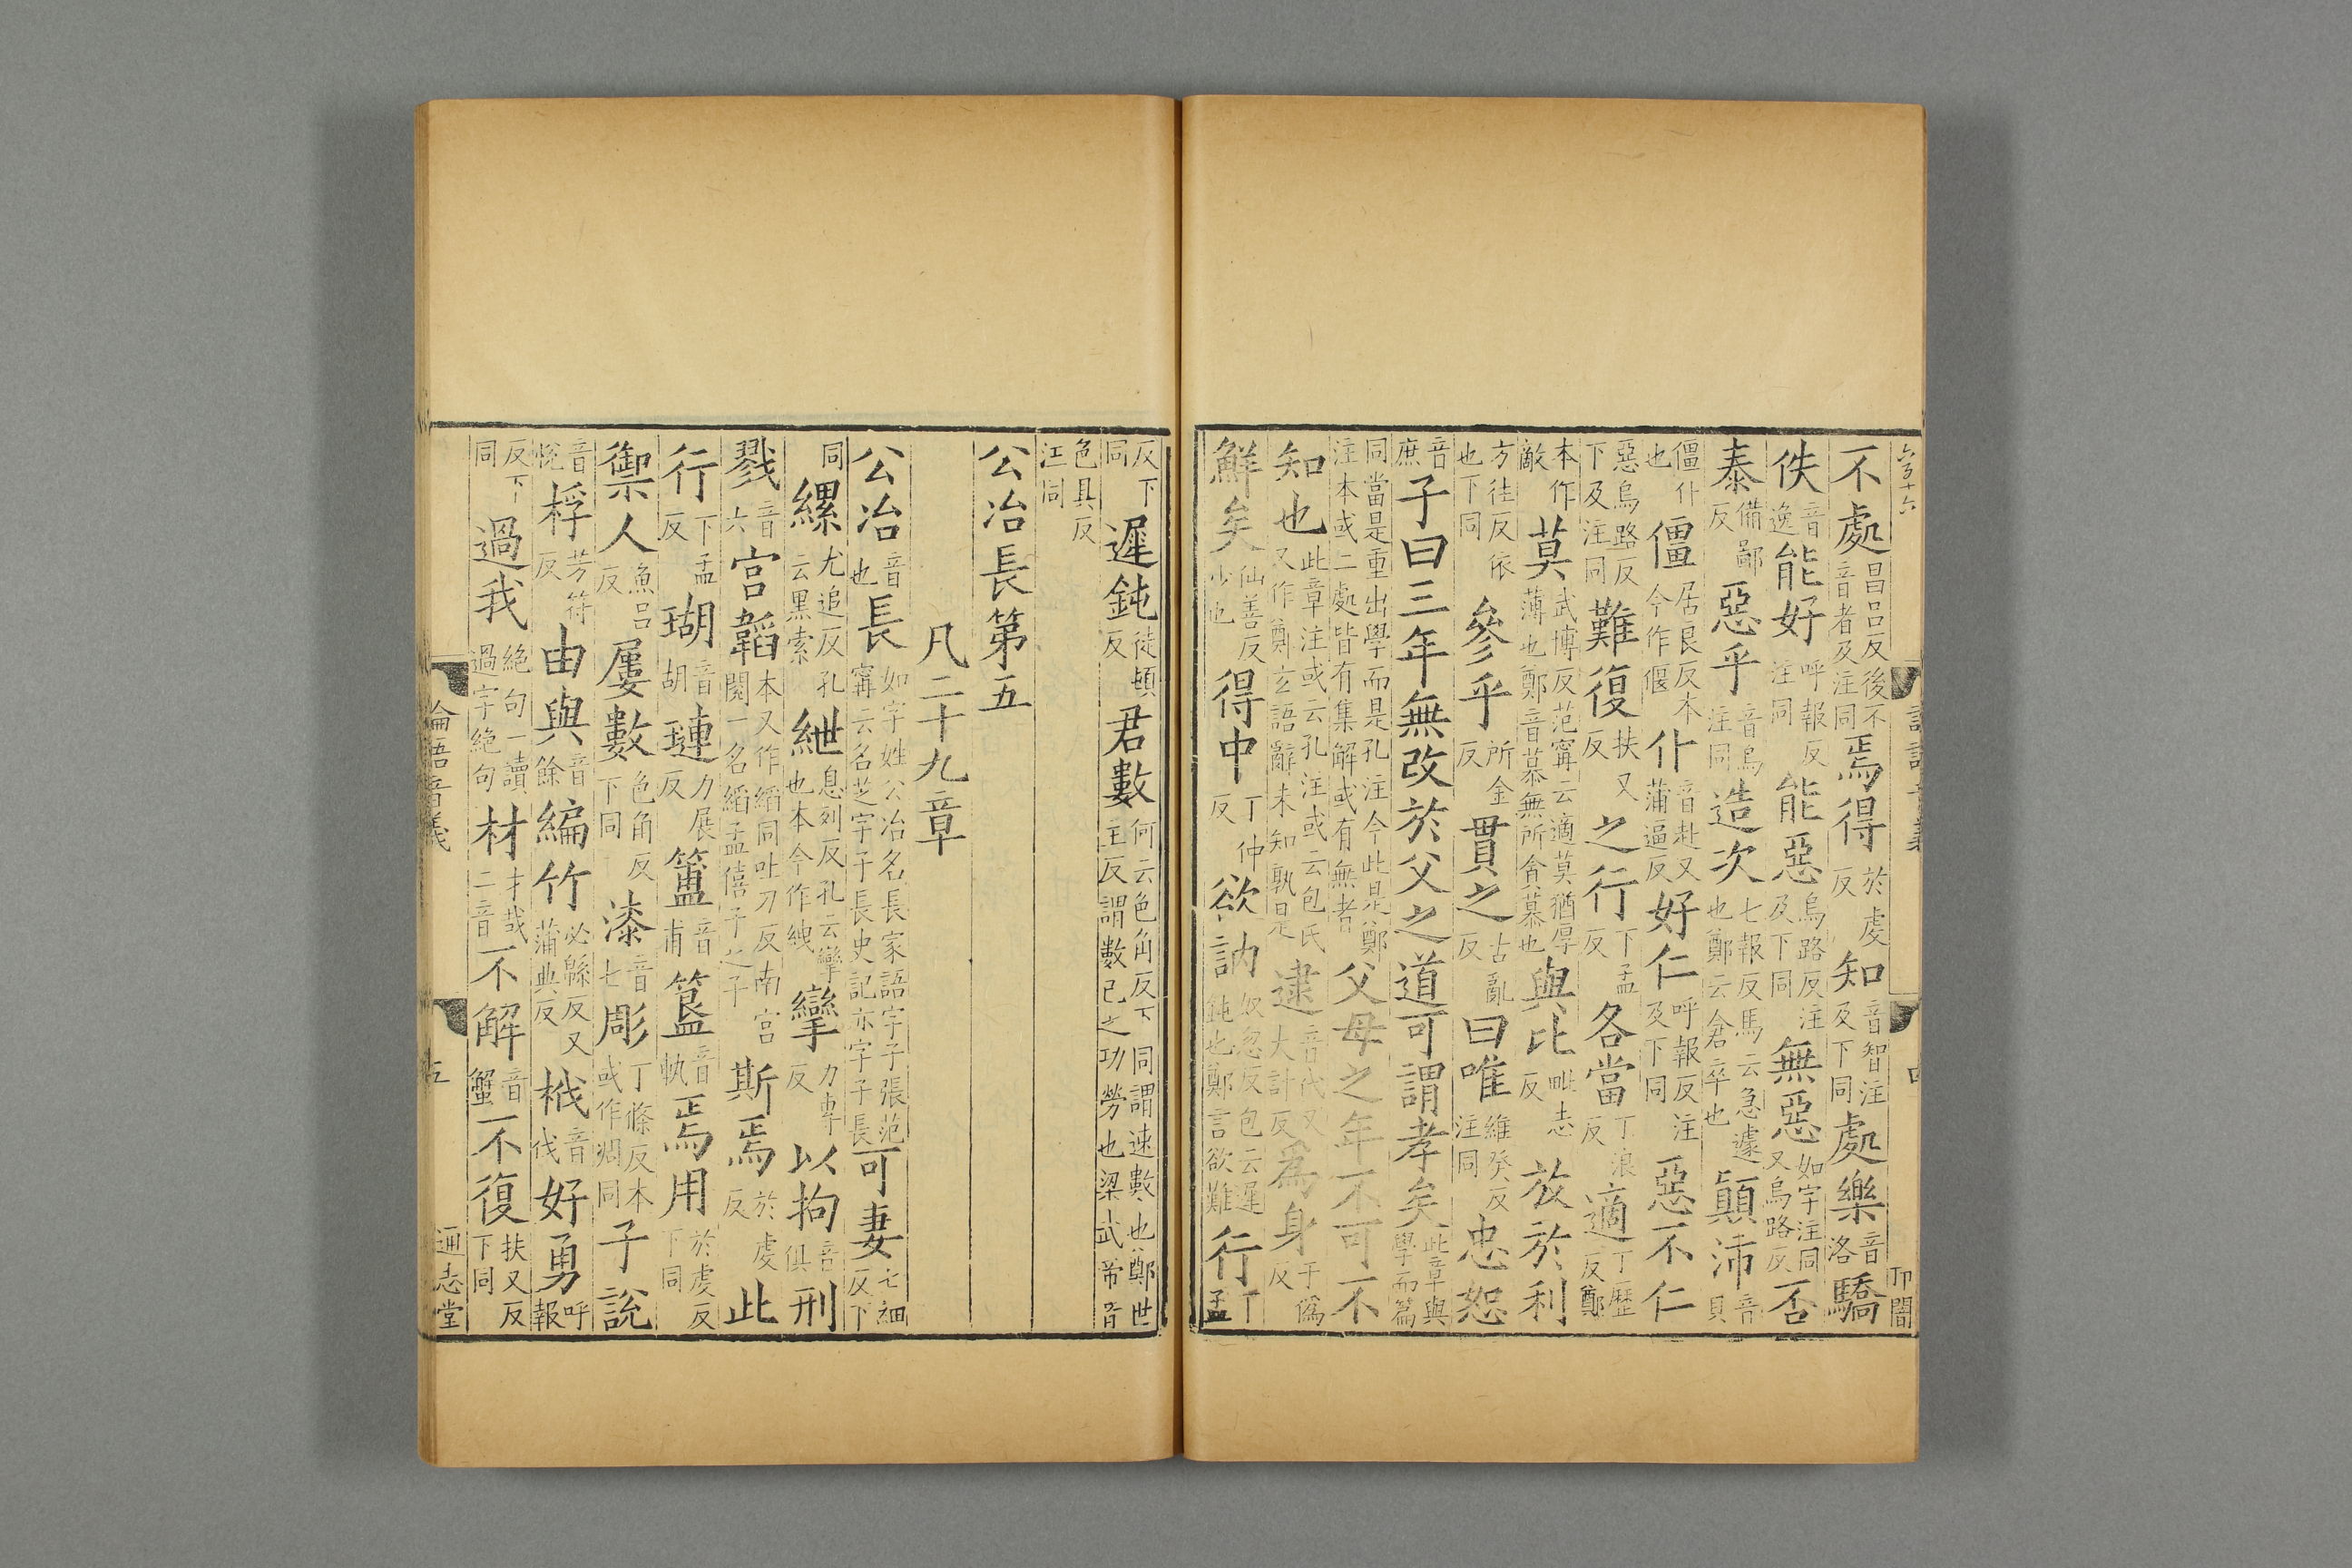 六百十六
卬閶
不處昌呂反後不音者及注同焉得於虔反知音智注及下同處樂音洛驕
佚音逸能好呼報反注同能惡烏路反注及下同無惡如字注同又烏路反否
泰備鄙反惡乎音烏注同造次七報反馬云急遽也鄭云倉卒也顛沛音貝
僵仆也僵居良反本今作偃仆音赴又蒲逼反好仁呼報反注及下同惡不仁
惡烏路反下及注同難復扶又反之行下孟反各當丁浪反適丁歷反鄭
本作敵莫武博反范甯云適莫猶厚薄也鄭音慕無所貪慕也與比毗志反放於利
方往反依也下同參乎所金反貫之古亂反曰唯維癸反注同忠恕
音庶子曰三年無改於父之道可謂孝矣此章與學而篇
同當是重出學而是孔注今此是鄭注本或二處皆有集解或有無者父母之年不可不
知也此章注或云孔注或云包氏又作鄭玄語辭未知孰是逮音代又大計反為身于偽反
鮮矣仙善反少也得中丁仲反欲訥奴忽反包云遲鈍也鄭言欲難行丁孟
反下同遲鈍徒頓反君數何云色角反下同謂速數也鄭世主反謂數己之功勞也梁武帝音
色具反注同
公冶長第五
凡二十九章
公冶音也長如字姓公冶名長家語字子張范甯云名芝字子長史記亦字子長可妻七細反下
同縲尤追反孔云黑索紲息列反孔云攣也本今作絏攣力專反以拘音俱刑
戮音六宮韜本又作縚同吐刀反南宮閱一名縚孟僖子之子斯焉於虔反此
行下孟反瑚音胡璉力展反簠音甫簋音軌焉用於虔反下同
禦人魚呂反屢數色角反下同漆音七彫丁條反本或作凋同子說
音悅桴芳符反由與音餘編竹必緜反又蒲典反栰音伐好勇呼報
反下同過我絕句一讀過字絕句材才哉二音不解音蟹不復扶又反下同
論語音義
五
通志堂